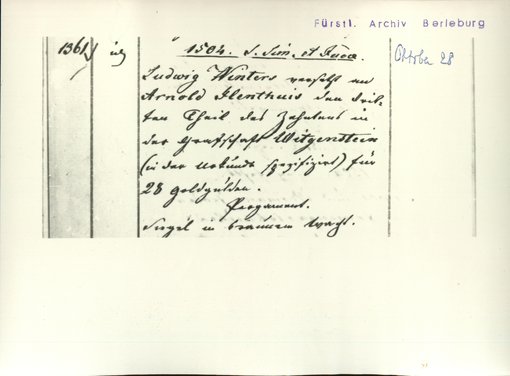 Fürstl. Archiv Berleburg
1361
1504. S. Sim. et Judae.
Oktober 28
Ludwig Winters versetzt an
Arnold Ilenthuis den drit-
ten Theil des Zehntens in
der Grafschaft Witgenstein
(in der Urkunde spezifizirt) für
28 Goldgulden.
Pergament.
Siegel in braunem Wachs.